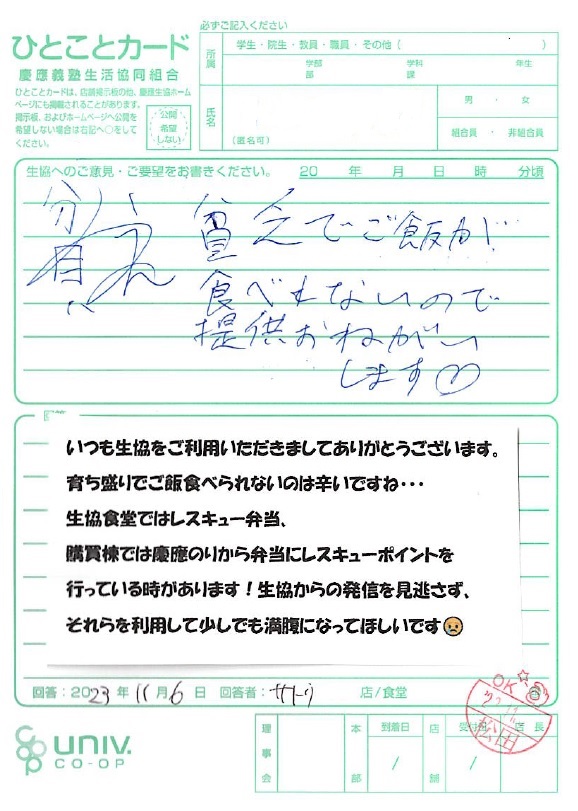 必ずご記入ください
ひとことカード
慶應義塾生活協同組合
ひとことカードは、店舗掲示板の他、慶應生協ホーム
ページにも掲載されることがあります。
掲示板、およびホームページへ公開を
希望しない場合は右記へ○をして
ください。
公開
希望
しない
所属
学生・院生・教員・職員・その他（　　　）
学部　学科　年生
部　課
氏名
（匿名可）
男・女
組合員・非組合員
生協へのご意見・ご要望をお書きください。 20　年　月　日　時　分頃
貧乏でご飯が
食べれないので
提供おねがい
します
いつも生協をご利用いただきましてありがとうございます。
育ち盛りでご飯食べられないのは辛いですね・・・
生協食堂ではレスキュー弁当、
購買棟では慶應のりから弁当にレスキューポイントを
行っている時があります！生協からの発信を見逃さず、
それらを利用して少しでも満腹になってほしいです😢
回答：2023年11月6日　回答者：サトウ　店/食堂
OK
松田
univ.
CO-OP
理事会
本部
到着日
/
店舗
/
店長